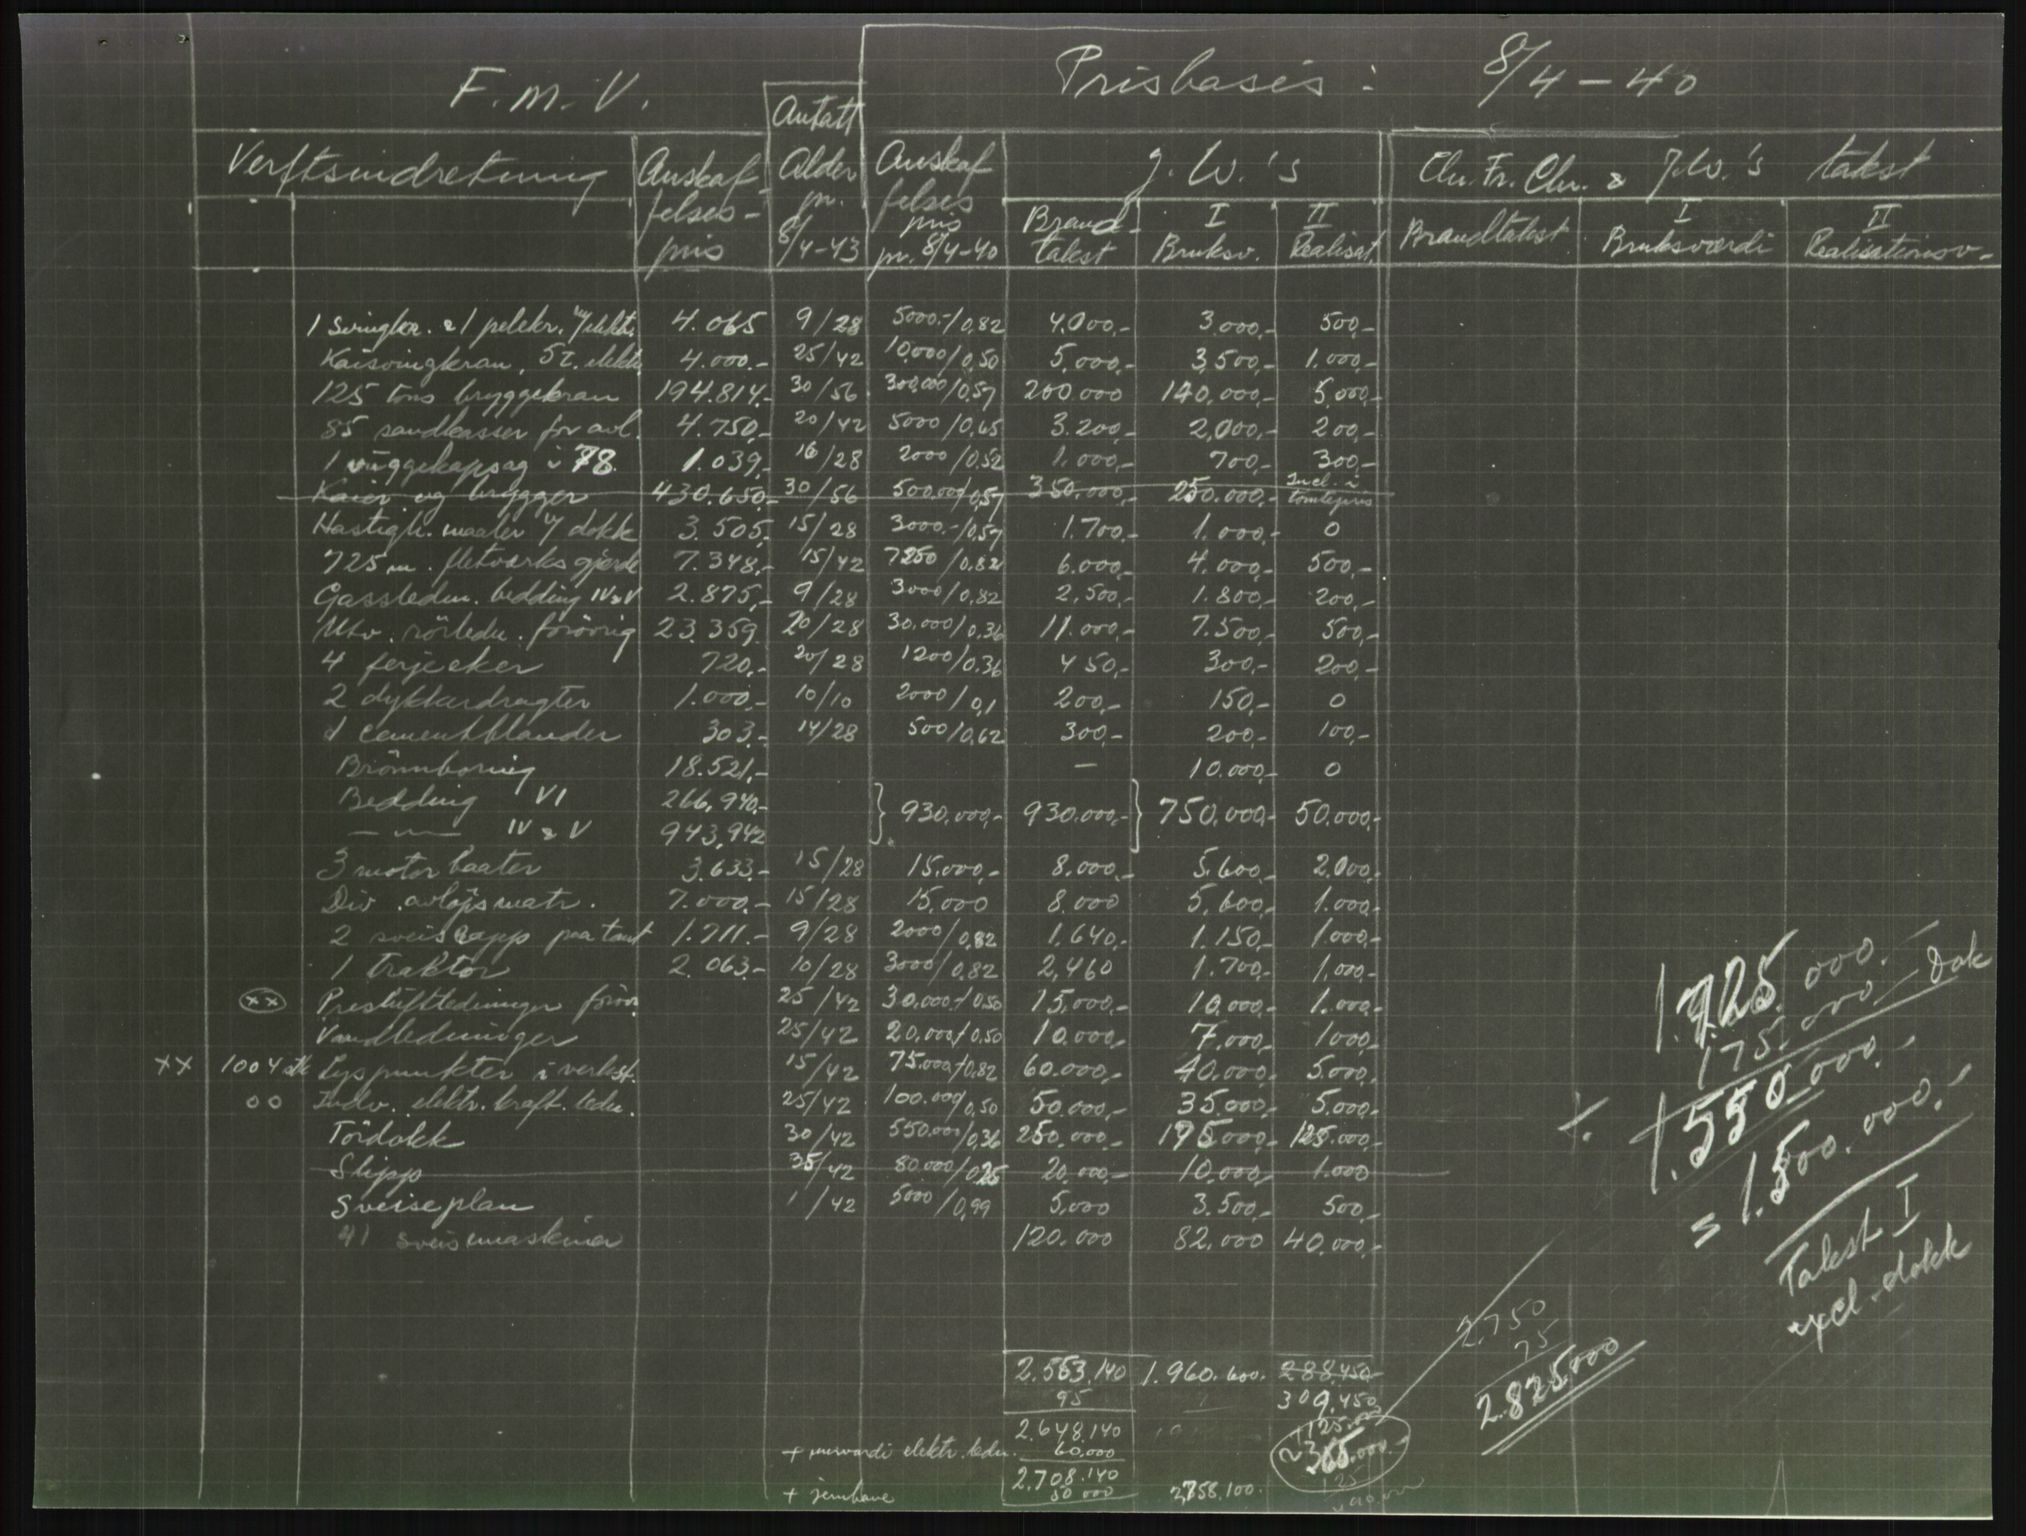 F.M.V.
Prisbasis: 8/4-40
Verftsindretning
Anskaffelsespris
Antatt Alder pr. 8/4-43
Anskaffelsespris pr. 8/4-40
J.W.'s
Chr. Fr. Chr. & J.W.'s takst
Brandtakst
I Bruksv.
II Realisat.
Brandtakst
I Bruksværdi
II Realisationsv-
1 svingkr. & 1 pelekr. m/elektr. 4.065 9/28 5000.-/0,82 4.000,- 3.000,- 500,-
Kaisvingkran, 5t. elektr. 4.000.- 25/42 10.000/0,50 5.000,- 3.500,- 1.000,-
125 tons bryggekran 194.814,- 30/56 300.000/0,57 200.000 140.000,- 5.000,-
85 sandkasser for avl. 4.750,- 20/42 5000/0,65 3.200,- 2.000,- 200,-
1 vuggekapsag i 78. 1.039,- 16/28 2000/0,52 1.000,- 700,- 300,-
Kaier og brygger 430.650,- 30/56 500.000/0,57 350.000,- 250.000,- Incl. i tomtepris
Hastigh. maaler i/ dokk 3.505,- 15/28 3000.-/0,57 1.700,- 1.000,- 0
725 m. fletverks gjerde 7.348,- 15/42 7250/0,82 6.000,- 4.000,- 500,-
Gassledn. bedding IV & V 2.875,- 9/28 3000/0,82 2.500,- 1.800,- 200,-
Utv. rörledn. forövrig 23.359 20/28 30.000/0,36 11.000,- 7.500,- 500,-
4 ferjeeker 720,- 20/28 1200/0,36 450,- 300,- 200,-
2 dykkerdragter 1.000,- 10/10 2000/0,1 200,- 150,- 0
1 cementblander 303,- 14/28 500/0,62 300,- 200,- 100,-
Brönnboring 18.521,- - 10.000,- 0
Bedding VI 266.940,-
} 930.000,- 930.000,- } 750.000,- 50.000,-
— " — IV & V 943,942
3 motorbaater 3.633,- 15/28 15.000,- 8.000,- 5.600,- 2.000,-
Div. avlöps matr. 7.000,- 15/28 15.000 8.000 5.600,- 1.000,-
2 sveiseapp paa tomt 1.711.- 9/28 2000/0,82 1.640,- 1.150,- 1.000,-
1 traktor 2.063.- 10/28 3000/0,82 2,460 1.700,- 1.000,-
(××) Presluftledninger förov. 25/42 30.000/0,50 15.000,- 10.000,- 1.000,-
Vandledninger 25/42 20.000/0,50 10.000,- 7.000,- 1000,-
×× 1004 stk Lyspunkter i verkst. 15/42 75.000/0,82 60.000,- 40.000,- 5.000,-
oo Indv. elektr. kraft. ledn. 25/42 100.000/0,50 50.000,- 35.000,- 5.000,-
Tördokk 30/42 550.000/0,36 250.000,- 175.000,- 125.000,-
Slipp 35/42 80.000/0,25 20.000,- 10.000,- 1.000
Sveiseplan 1/42 5000/0,99 5.000 3.500,- 500,-
41 sveisemaskiner 120.000 82.000 40.000,-
1.725.000.-
175.000 - Dok
1.550.000.-
= 1.500.000.-
Takst I
excl. dokk
2.750
75
2.825.000
2.553.140 1.960.600. 288.450
95 309,450
2.648.140 125.000
+ nuværdi elektr. ledn. 60.000 365.000.-
2.708.140 25
+ jernbane 50 000 2,758.100.